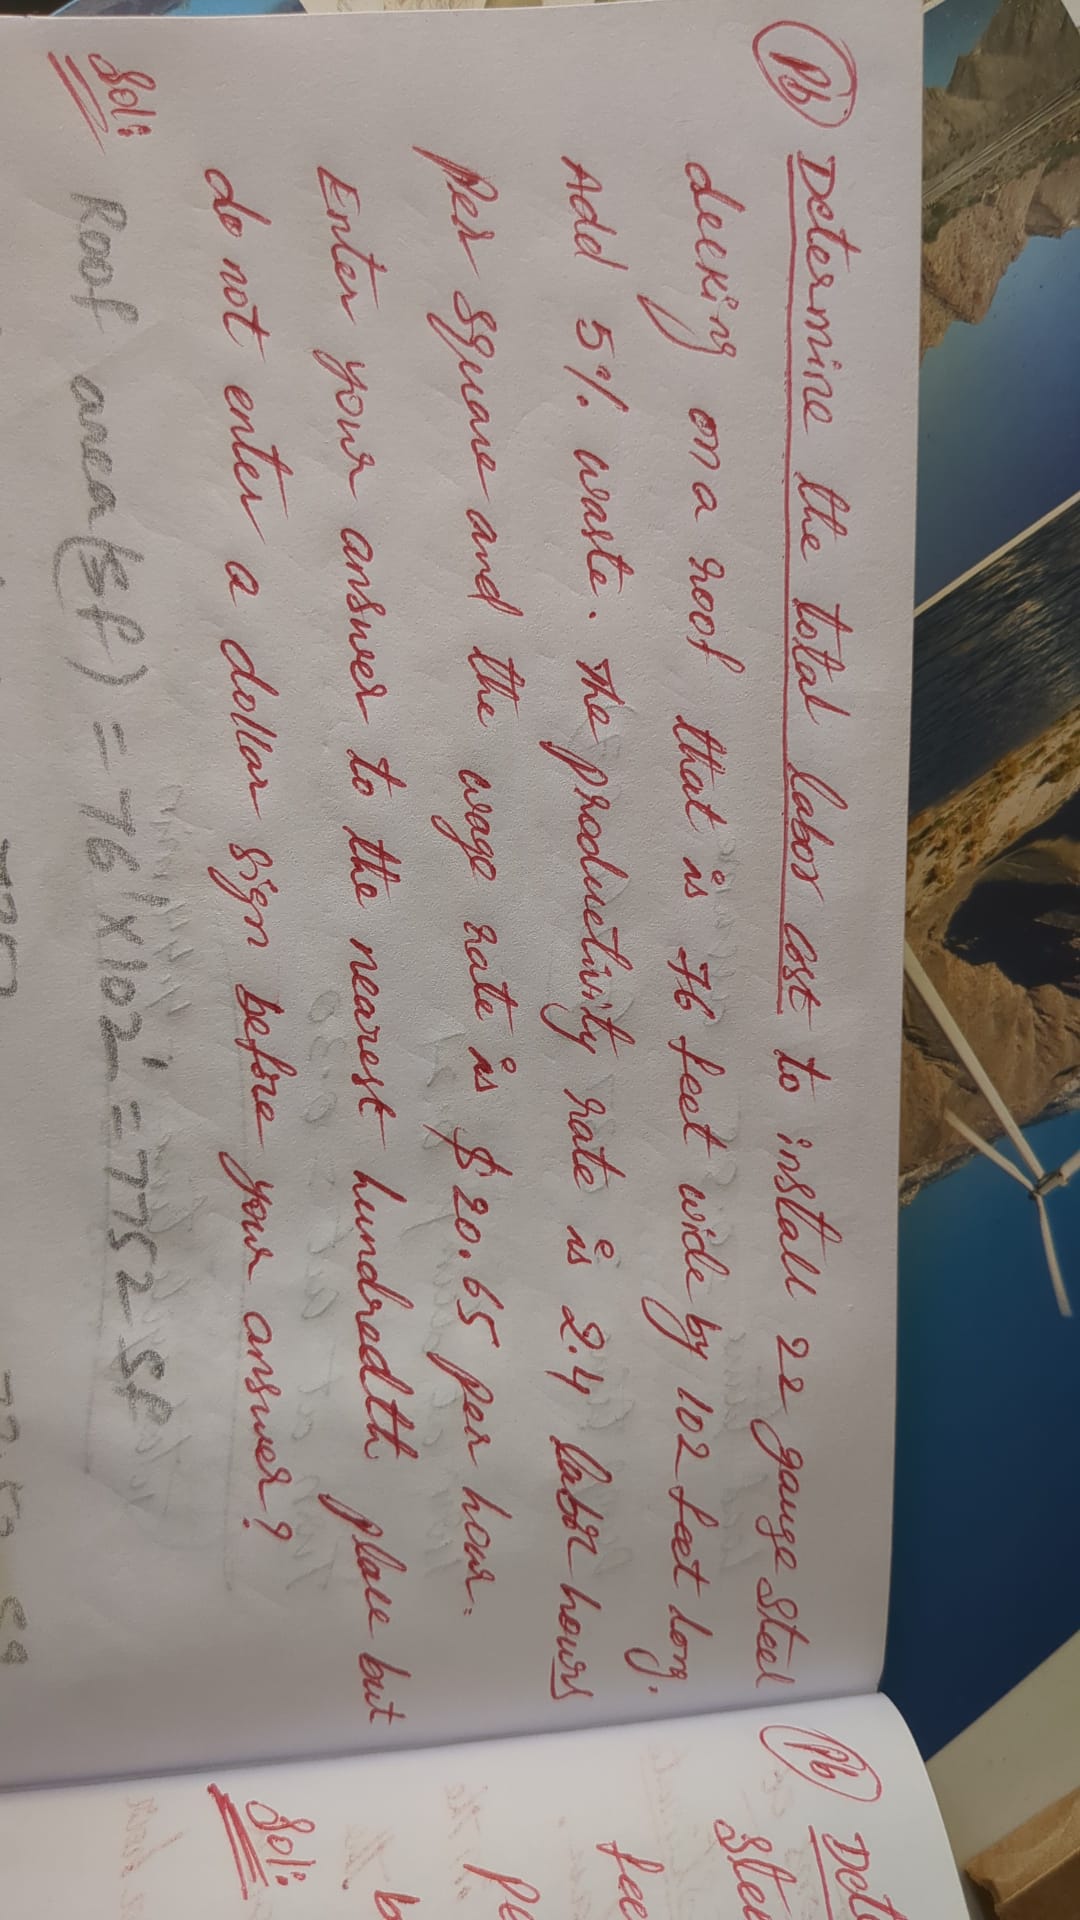 Pb Determine the total labor cost to install 22 gauge Steel
decking on a roof that is 76 feet wide by 102 feet long.
Add 5% waste. The productivity rate is 2.4 labor hours
per square and the wage rate is $20.65 per hour.
Enter your answer to the nearest hundredth place but
do not enter a dollar sign before your answer?
Sol: Roof area (SF) = 76' x 102' = 7752 SF
Pb
Sol: